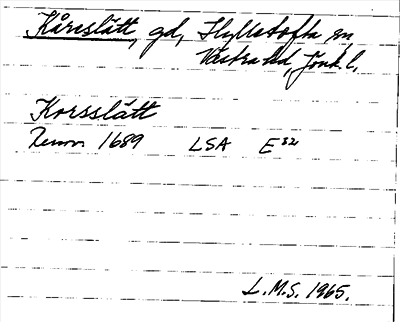 Kårsslätt, gd, Hyllstofta sn
Västra hd, Jönk. l.
Korsslätt
Renov 1689 LSA E³²
L.M.S. 1965.